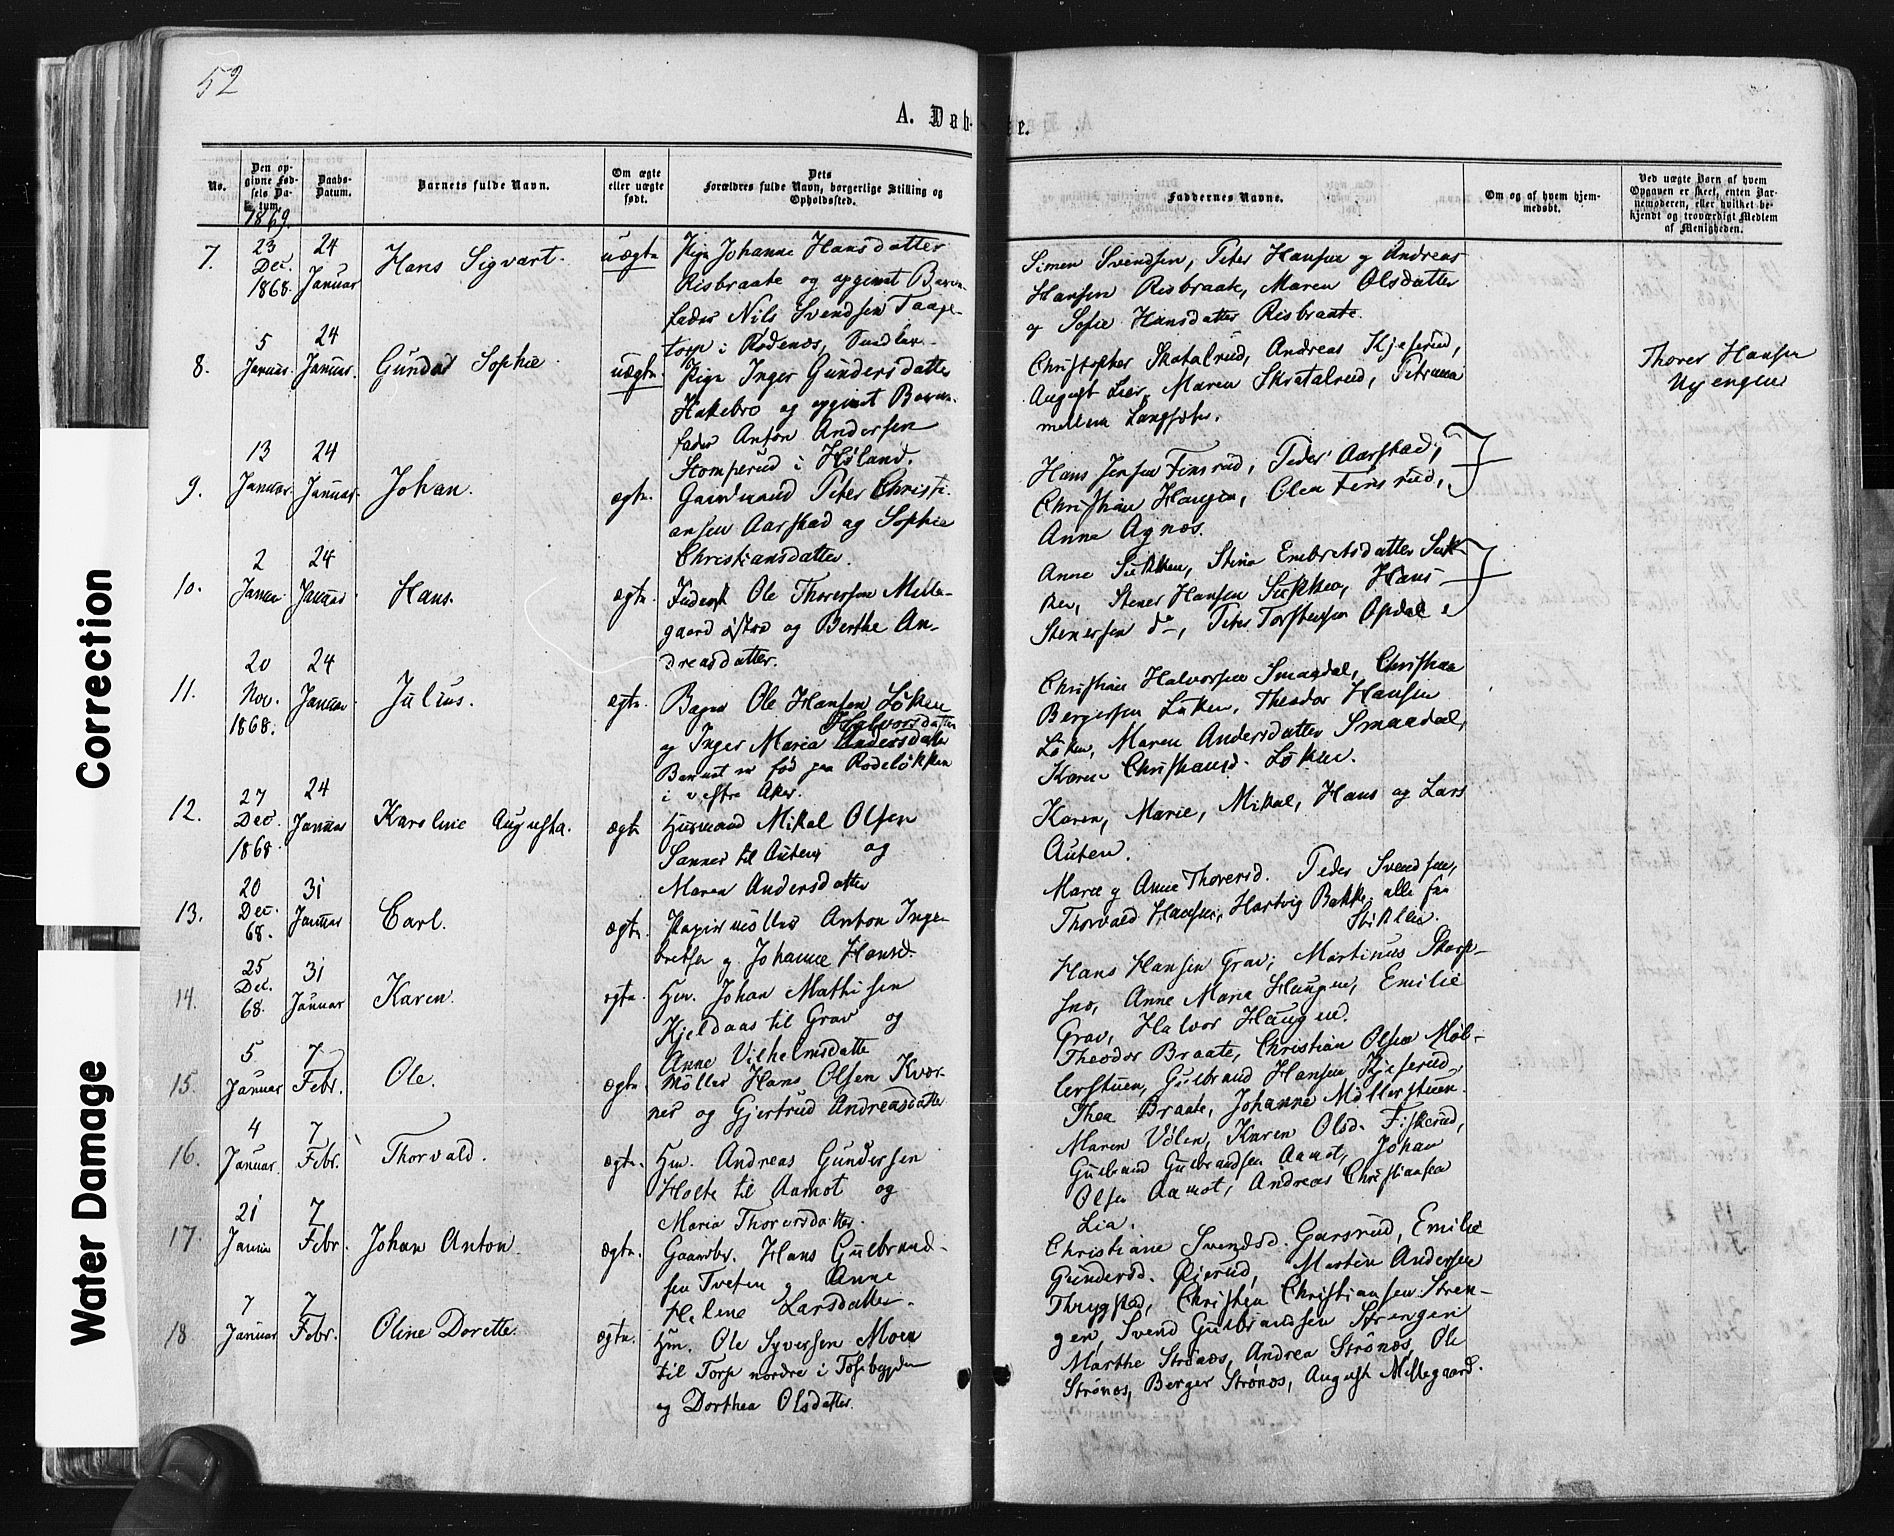 52
A. Døb-
te.
No.
Den op-
givne Fød-
sels Da-
tum.
Daabs-
Datum.
Barnets fulde Navn.
Om ægte
eller uægte
født.
Dets
Forældres fulde Navn, borgerlige Stilling og
Opholdssted.
Faddernes Navne.
Om og af hvem hjem-
medøbt.
Ved uægte Børn af hvem
Opgaven er skeet, enten Bar-
nemoderen, eller hvilket be-
kjendt og troværdigt Medlem
af Menigheden.
1869.
7.
23
Dec.
1868.
24
Januar
Hans Sigvart.
uægte
Pige Johanne Hansdatter
Risbraate og opgivet Barne-
fader Nils Svendsen Taage-
torp i Rødenæs,
Simen Svendsen, Peter Hansen og Andreas
Hansen Risbraate, Maren Olsdatter
og Sofie Hansdatter Risbraate.
8.
5
Januar.
24
Januar.
Gunda Sophie
uægte.
Pige Inger Gundersdatter
Hakebro og opgivet Barne-
fader Anton Andersen
Homperud i Høland.
Christopher Skatalrud, Andreas Kjeserud,
August Lier, Maren Skratalrud, Petrina
mellem Langsæter.
Thorer Hansen
Nyengen
9.
13
Januar.
24
Januar.
Johan.
ægte.
Gaardmand Peter Christi-
ansen Aarstad og Sophie
Christiansdatter.
Hans Jensen Finsrud, Peder Aarstad,
Christian Haugen, Olea Finsrud,
Anne Agnæs.
10.
2
Januar
24
Januar
Hans.
ægte.
Ole Thoresen Mille-
gaard østre og Berthe An-
dreasdatter.
Anne Sukken, Stina Embretsdatter Suk-
ken, Stener Hansen Sukken, Hans
Stenersen do, Peter Torstensen Opdal
11.
20
Nov.
1868.
24
Januar
Julius.
ægte.
Bager Ole Hansen Løken
Halvorsdatter
og Inger Maria Andersdatter
Barnet er fød paa Rodeløkken
i vestre Aker.
Christian Halvorsen Smaadal, Christian
Bergersen Løken, Theodor Hansen
Løken, Maren Andersdatter Smaadal,
Karen Christiansd. Løken.
12.
27
Dec.
1868
24
Januar
Karoline Augusta.
ægte
Husmand Mikal Olsen
Sanner til Auten og
Maren Andersdatter
Karen, Marie, Mikal, Hans og Lars
Auten.
13.
20
Dec.
68.
31
Januar
Carl.
ægte.
Papirmøller Anton Inge-
bretsen og Johanne Hansd.
Maren og Anne Thorersd. Peder Svendsen,
Thorvald Hansen, Hartvig Bakke, alle fra
Stiklen.
14.
25
Dec.
68.
31
Januar
Karen.
ægte.
Hm. Johan Mathisen
Kjeldaas til Grav og
Anne Vilhelmsdatter
Hans Hansen Grav, Martinus Skarp-
sno, Anne Maria Haugen, Emilie
Grav, Halvor Haugen.
15.
5
Januar
7
Febr.
Ole.
ægte.
Møller Hans Olsen Kvær-
ner og Gjertrud Andreasdatter
Theodor Braate, Christian Olsen Møl-
lerstuen, Gulbrand Hansen Kjeserud,
Thea Braate, Johanne Møllerstuen.
16.
4
Januar.
7
Febr.
Thorvald.
ægte.
Hm. Andreas Gundersen
Holte til Aamot og
Maria Thorersdatter.
Maren Vølen, Karen Olsd. Fiskerud,
Gulbrand Gulbrandsen Aamot, Johan
Olsen Aamot, Andreas Christiansen
Lia.
17.
21
Januar
7
Febr.
Johan Anton.
ægte.
Gaardbr. Hans Gulbrand-
sen Tveten og Anne
Helene Larsdatter.
Christiane Svendsd. Garsrud, Emilie
Gundersd. Øierud, Martin Andersen
Thrygstad, Christen Christiansen Stren-
gen, Svend Gulbrandsen Strengen
18
7
Januar
7
Febr.
Oline Dorette.
ægte.
Hm. Ole Syversen Moen
til Torp nordre i Tosebygden
og Dorthea Olsdatter.
Marthe Strønæs, Andrea Strønæs, Ole
Strønæs, Berger Strønæs, August Millegaard.
Correction
Water Damage